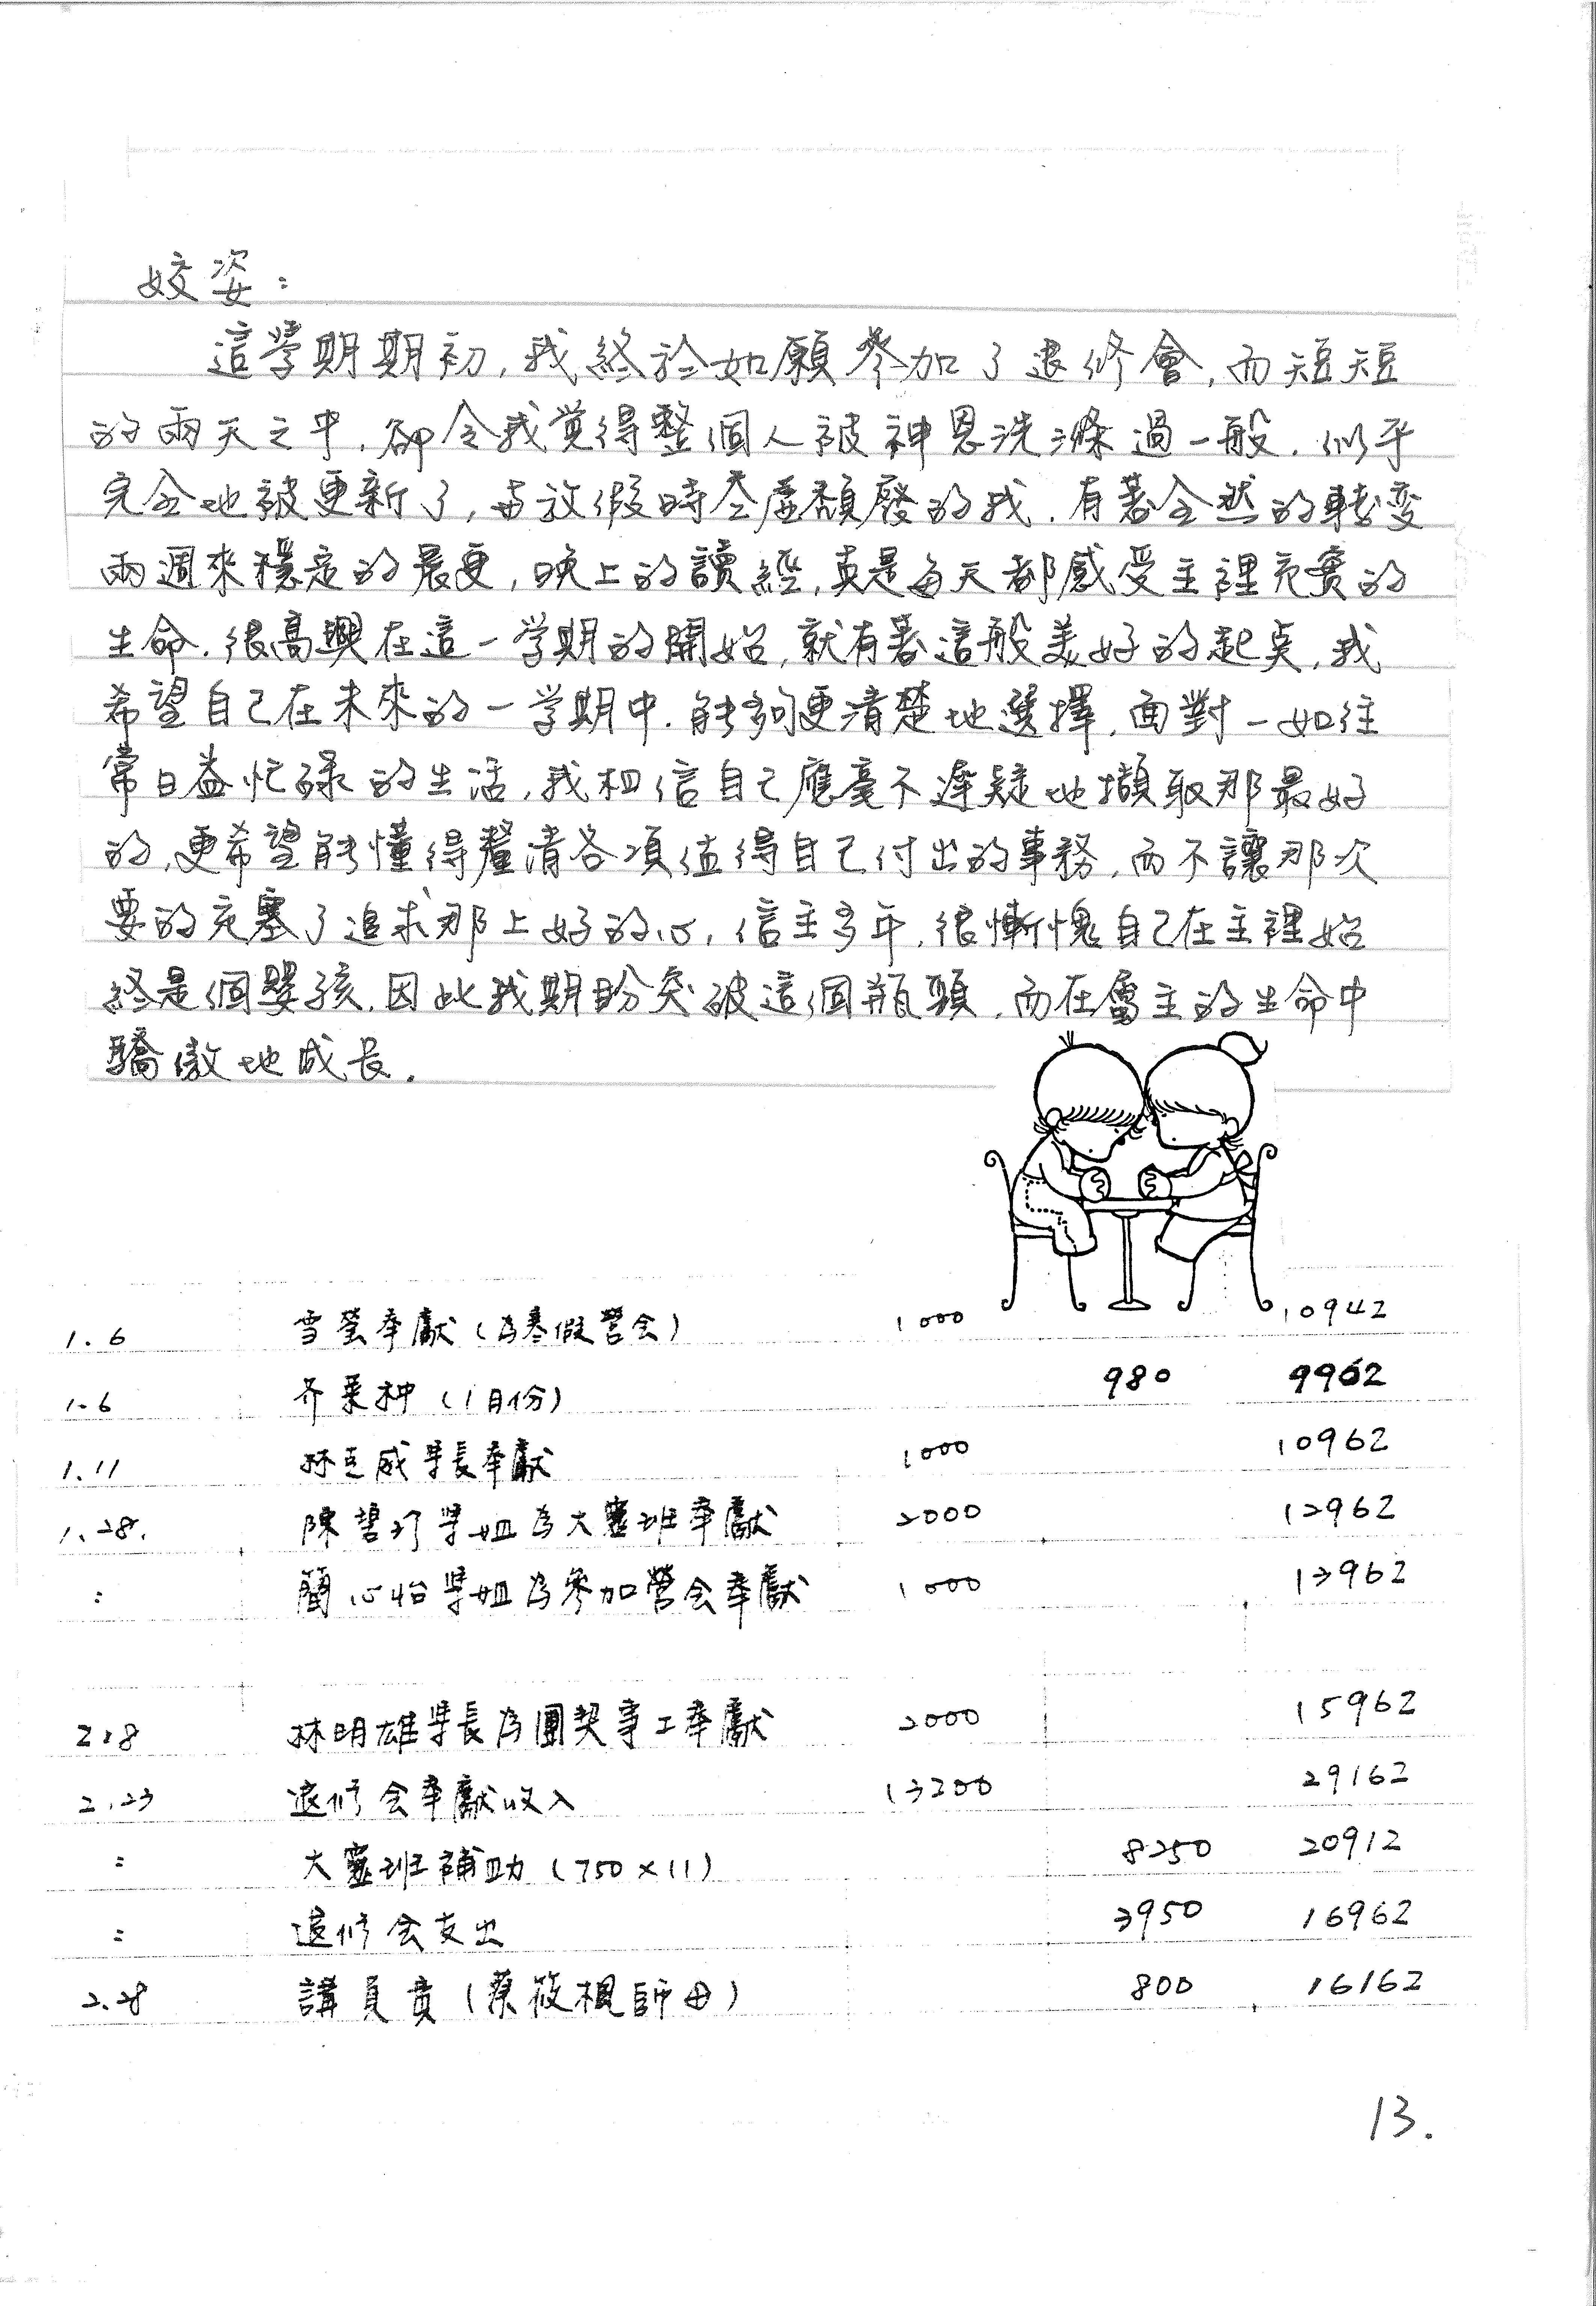 姣姿：
這學期期初，我終於如願參加了退修會，而短短
的兩天之中，卻令我覺得整個人被神恩洗滌過一般，似乎
完全地被更新了，與放假時空虛頹廢的我，有著全然的轉变
兩週來穩定的晨更，晚上的讀經，真是每天都感受主裡充實的
生命，很高興在這一学期的開始，就有著這般美好的起奌，我
希望自己在未來的一学期中，能夠更清楚地選擇，面對一如往
常日益忙碌的生活，我相信自己應毫不遲疑地擷取那最好
的，更希望能懂得釐清各項值得自己付出的事務，而不讓那次
要的充塞了追求那上好的心，信主多年，很慚愧自己在主裡始
終是個嬰孩，因此我期盼突破這個瓶頸，而在屬主的生命中
驕傲地成長．
1.6 雪瑩奉獻（為寒假营会） 1000 10942
1.6 齐菜种（1月份） 980 9962
1.11 林克威学長奉獻 1000 10962
1.28. 陳碧珍学姐為大靈班奉獻 2000 12962
： 簡心怡学姐為參加營会奉獻 1000 13962
2.8 林明雄学長為團契事工奉獻 2000 15962
2.23 退修会奉獻收入 13200 29162
： 大靈班補助（750×11） 8250 20912
： 退修会支出 3950 16962
2.28 講員費（蔡筱楓師母） 800 16162
13.